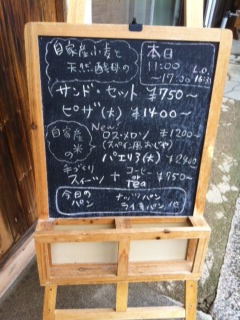 自家産小麦と
天然酵母の
本日
11:00
~17:00
L.O.
16:30
サンド・セット ¥750~
ピザ(大) ¥1400~
New!
自家産
の米
ロス・メロソ ¥1200~
(スペイン風おじや)
パエリヤ(大) ¥2800
手づくり
スイーツ + コーヒー
or
Tea ¥950~
今日の
パン
ナッツパン
ライ麦パン 他